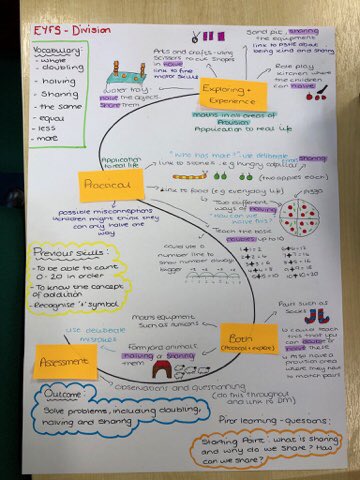 EYFS - Division
Vocabulary:
- whole
- doubling
- halving
- sharing
- the same
- equal
- less
- more
Arts and crafts - using
scissors to cut shapes
in halve
link to fine
motor skills
Sand pit, sharing
the equipment
link to PSHE about
being kind and sharing
Role play
kitchen where the
children can
halve
Water tray,
halve the objects
share them
Exploring +
Experience
maths in all areas of
Provision
Application to real life
Application
to real life
"Who has more?" use deliberate
sharing
link to stories e.g hungry caterpillar
(two apples each)
Practical
Link to food (e.g everyday life)
pizza
possible misconceptions
children might think they
can only halve one
way
Two different
ways of halving
"How can we
halve this?"
Teach the basic
doubles up to 10
1+1=2
2+2=4
3+3=6
4+4=8
5+5=10
6+6=12
7+7=14
8+8=16
9+9=18
10+10=20
could use a
number line to
show number always
bigger
Previous skills:
- To be able to count
0-20 in order
- To know the concept
of addition
- Recognise '=' symbol
Maths equipment
such as unicons
Pairs such as
socks
Use deliberate
mistakes
Farmyard animals
halving or sharing
them
Both
Could teach this
that you can
double or
halve these
Must have a
prior learning
where they have
to match pairs
Assessment
observations and questioning
(do this throughout
and link to DM)
Outcome:
Solve problems, including doubling,
halving and sharing
Prior learning - questions:
Starting Point: what is sharing
and why do we share? How
can we share?